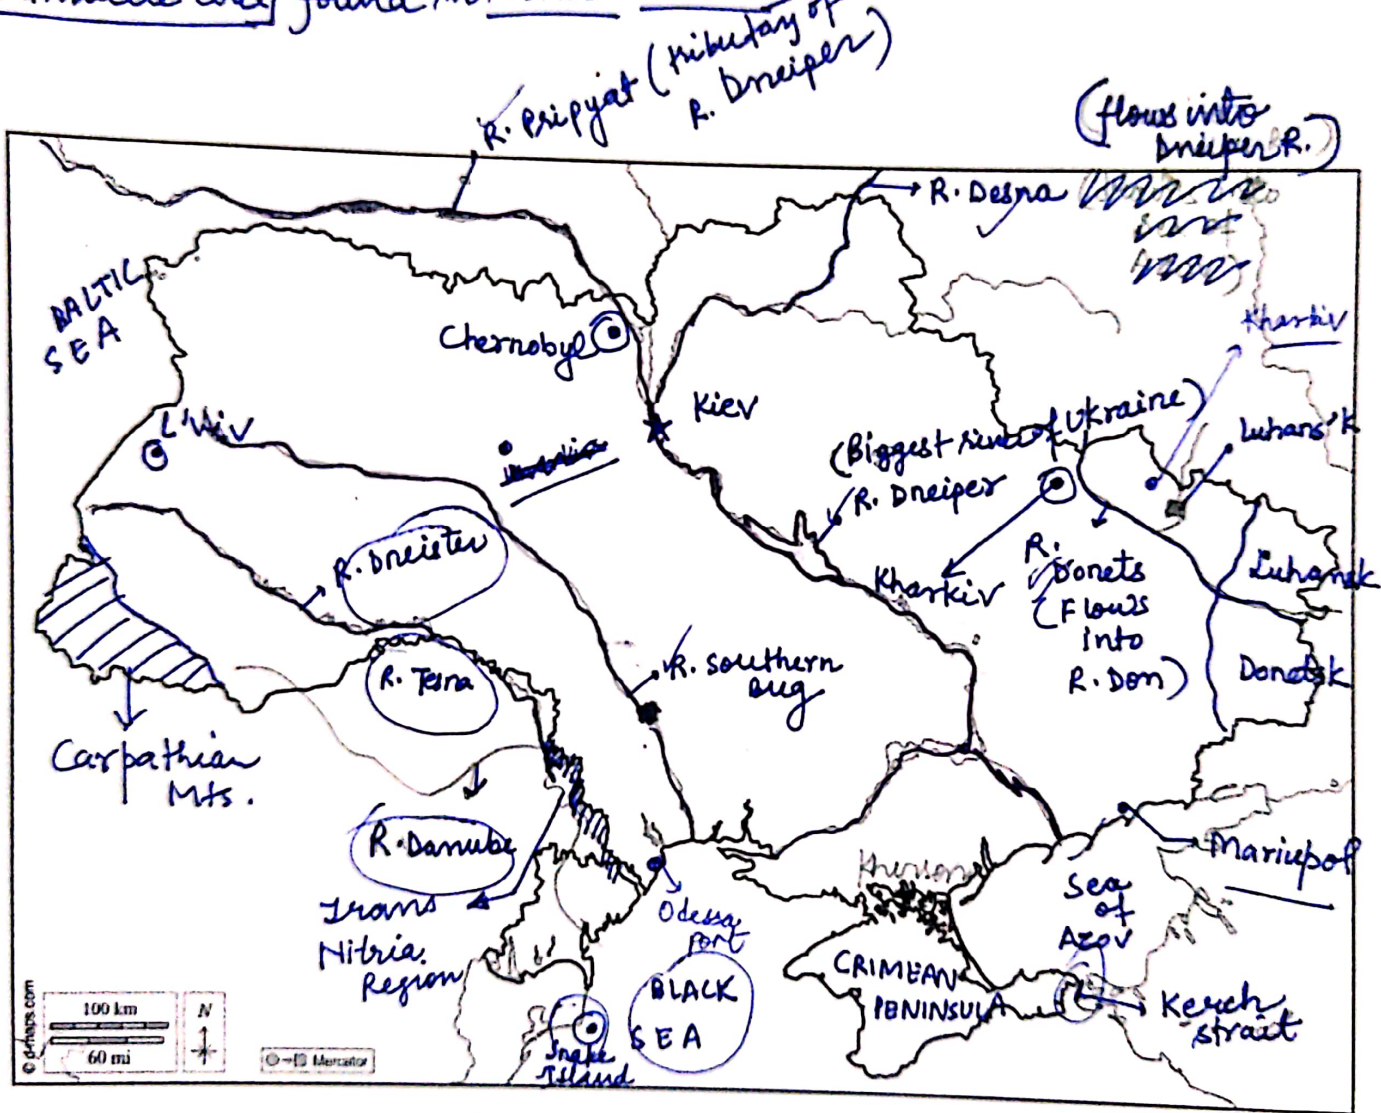 found in
R. Pripyat (tributary of
R. Dneiper)
(flows into
Dneiper R.)
R. Desna
BALTIC
SEA
Chernobyl
Kharkiv
L'viv
Kiev
(Biggest river of Ukraine)
R. Dneiper
Luhans'k
R. Dneister
Kharkiv
R.
Donets
(Flows
into
R. Don)
Luhansk
R. Southern
Bug
Donetsk
Carpathian
Mts.
R. Danube
Mariupol
Trans
Nitria
Region
Odessa
port
Kherson
Sea
of
Azov
BLACK
SEA
CRIMEAN
PENINSULA
Kerch
strait
Snake
Island
© d-maps.com
100 km
60 mi
N
Mercator